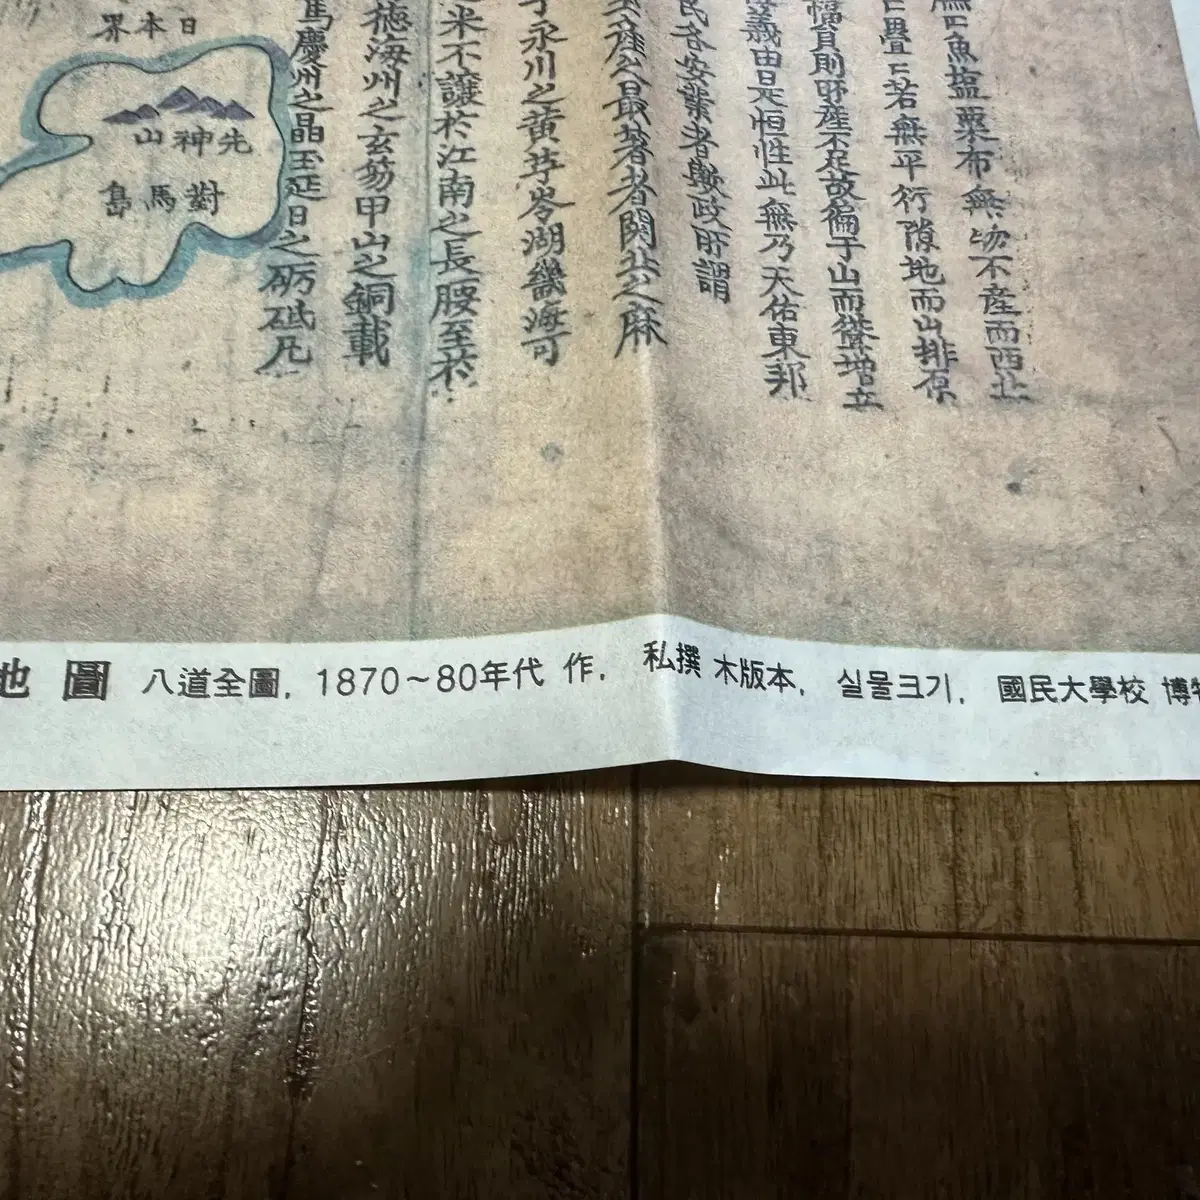 日本界
先神山
對馬島
無巳魚塩粟布無物不産而西北
巳疊巳若無平行隙地而山排原
幅員則野産不足故偏于山而
義由是恒性此無乃天佑東邦
民各安業者歟政所謂
産之最著者關北之麻
永川之黄芽岑湖畿海可
米不讓於江南之長腰至於
德海州之玄芴甲山之銅載
馬慶州之晶玉延日之砺砥凡
地圖 八道全圖, 1870~80年代 作, 私撰 木版本, 실물크기, 國民大學校 博物